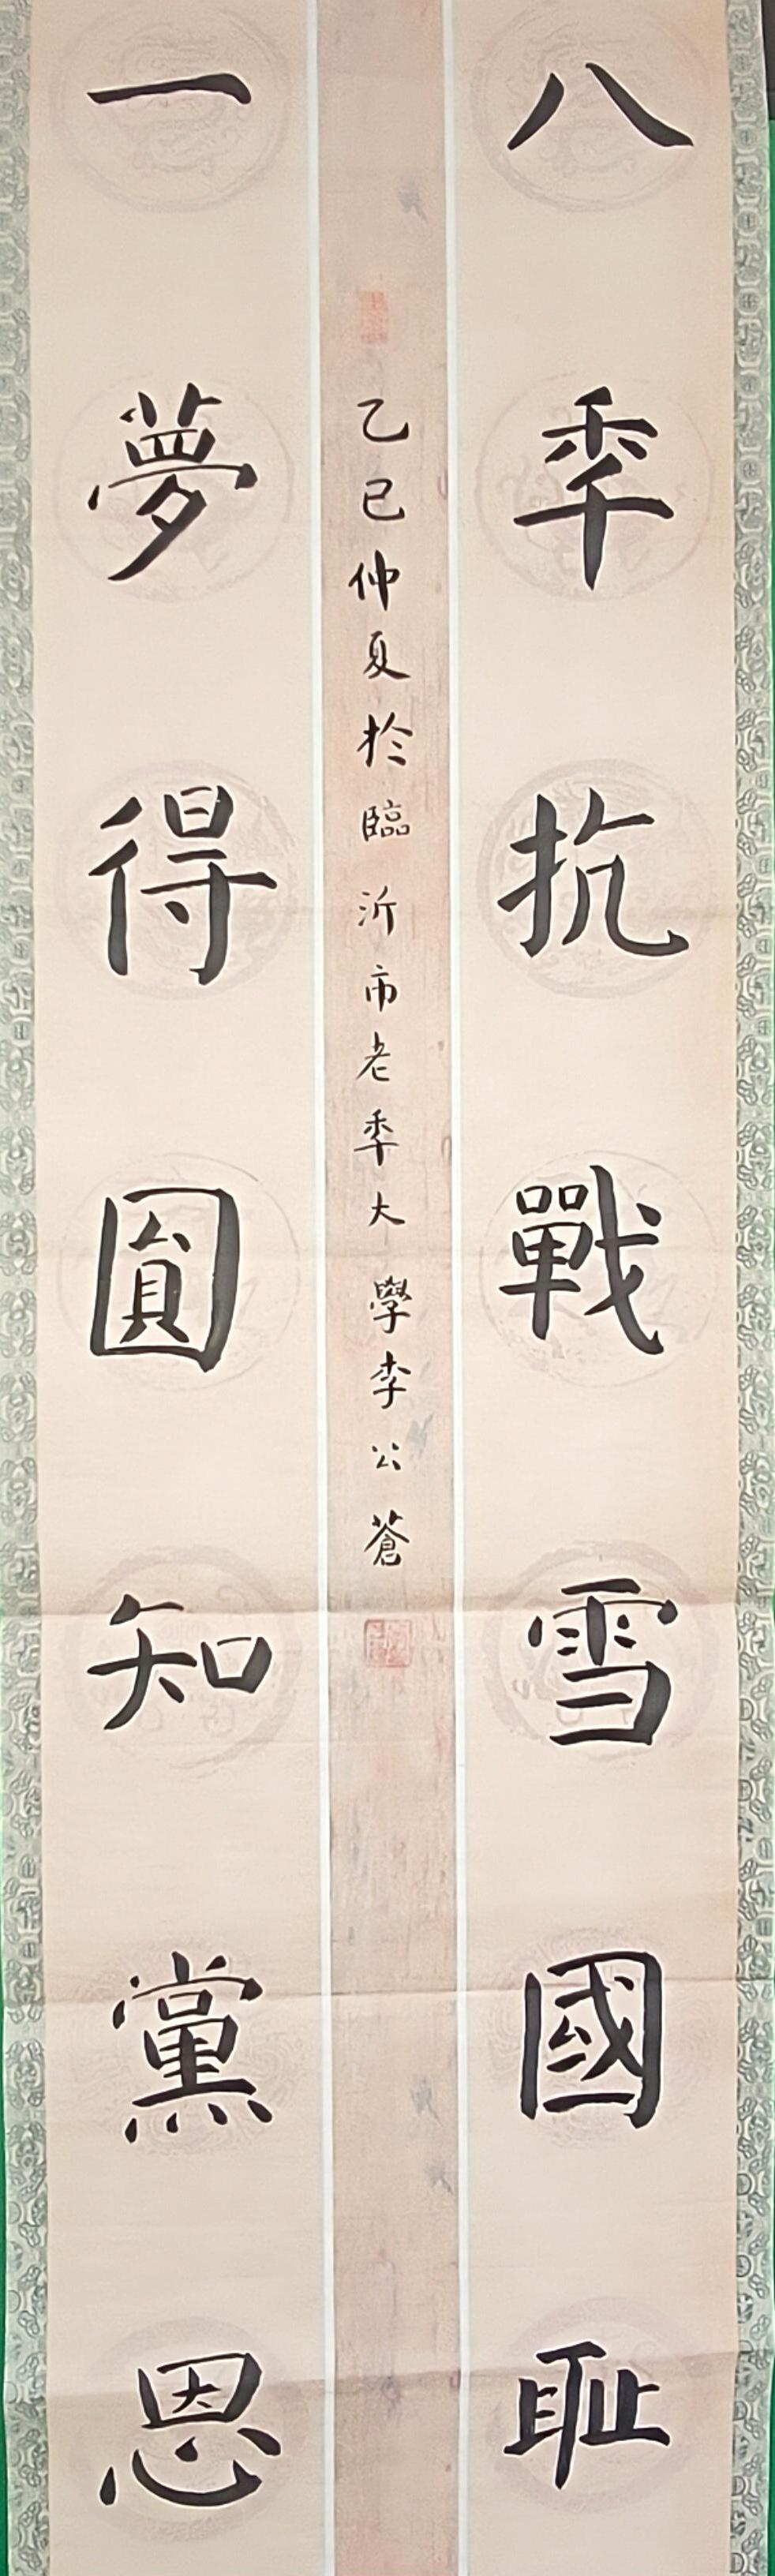 八秊抗戰雪國恥
一夢得圓知黨恩
乙巳仲夏於臨沂市老秊大學李公蒼